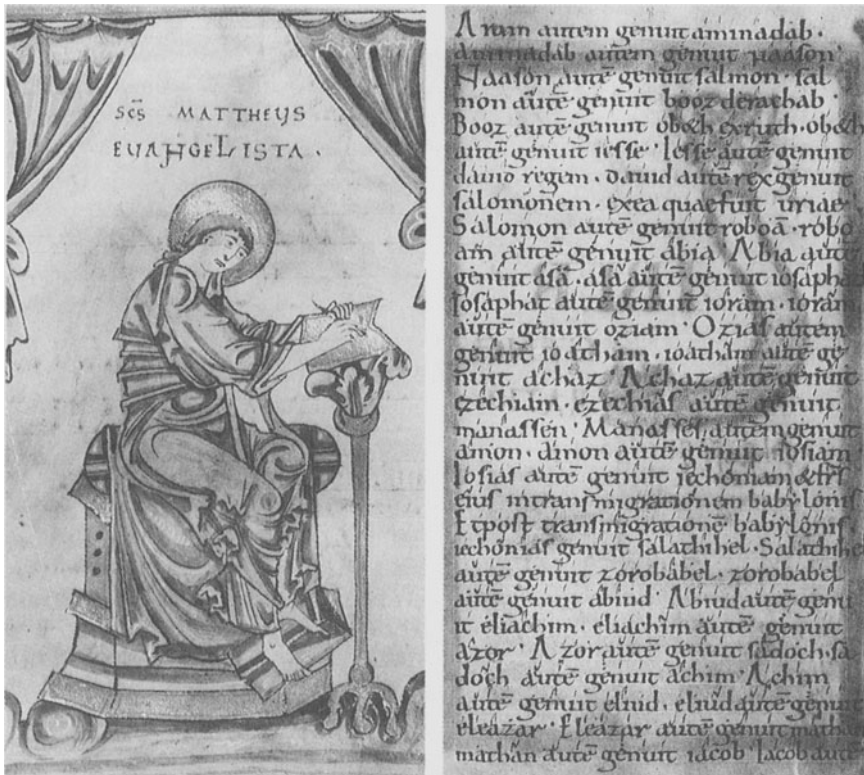 SCS MATTHEUS
EUANGELISTA .
Aram autem genuit aminadab .
aminadab autem genuit naason .
Naason autē genuit salmon . sal
mon autē genuit booz derachab .
Booz autē genuit obeth exruth . obeth
autē genuit iesse . Iesse autē genuit
dauid regem . dauid autē rex genuit
salomonem . exea quae fuit uriae .
Salomon autē genuit roboā . robo
am autē genuit abia . Abia autē
genuit asā . asā autē genuit iosaphat
Iosaphat autē genuit ioram . ioram
autē genuit oziam . Ozias autem
genuit ioatham . ioatham autē ge
nuit achaz . Achaz autē genuit
ezechiam . ezechias autē genuit
manassen . Manasses autem genuit
amon . amon autē genuit iosiam
Iosias autē genuit iechoniam & frs̄
eius intransmigrationem babylonis .
Et post transmigrationē babylonis .
iechonias genuit salathihel . Salathihel
autē genuit zorobabel . zorobabel
autē genuit abiud . Abiud autē genu
it eliachim . eliachim autē genuit
azor . Azor autē genuit sadoch . sa
doch autē genuit achim . Achim
autē genuit eliud . eliud autē genuit
eleazar . Eleazar autē genuit mathan
mathan autē genuit iacob . Iacob autē